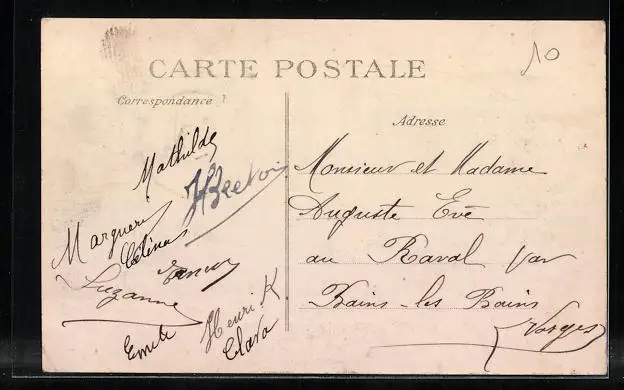 10
CARTE POSTALE
Correspondance
Adresse
Mathilde
Marguerite
Célina
Suzanne
Emile
Henri K
Clara
Monsieur et Madame
Auguste Eve
au Raval par
Bains-les Bains
(Vosges)